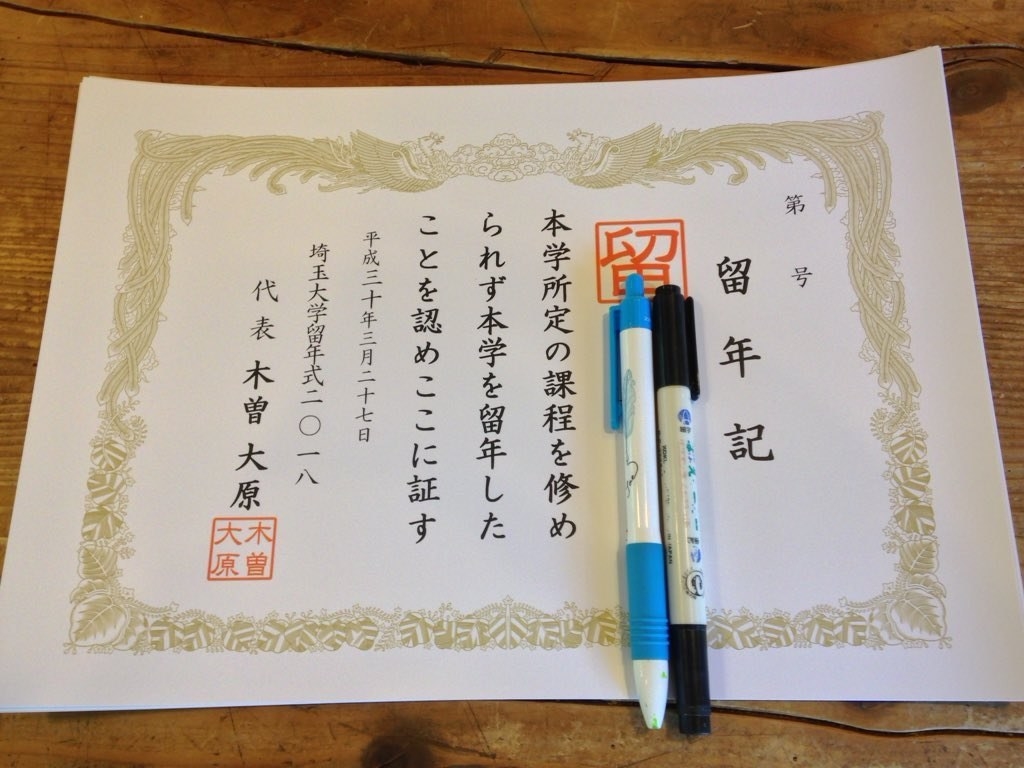 第　号
留年記
留
本学所定の課程を修め
られず本学を留年した
ことを認めここに証す
平成三十年三月二十七日
埼玉大学留年式二〇一八
代表 木曽大原
木曽
大原